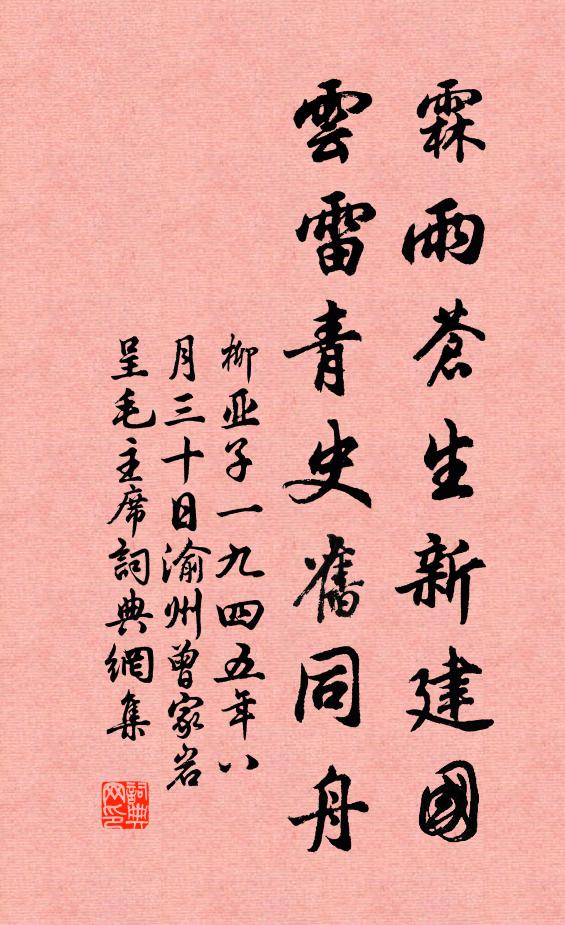 霖雨蒼生新建國
雲雷青史舊同舟
柳亚子一九四五年八
月三十日渝州曾家岩
呈毛主席詞典網集
詞典
网印